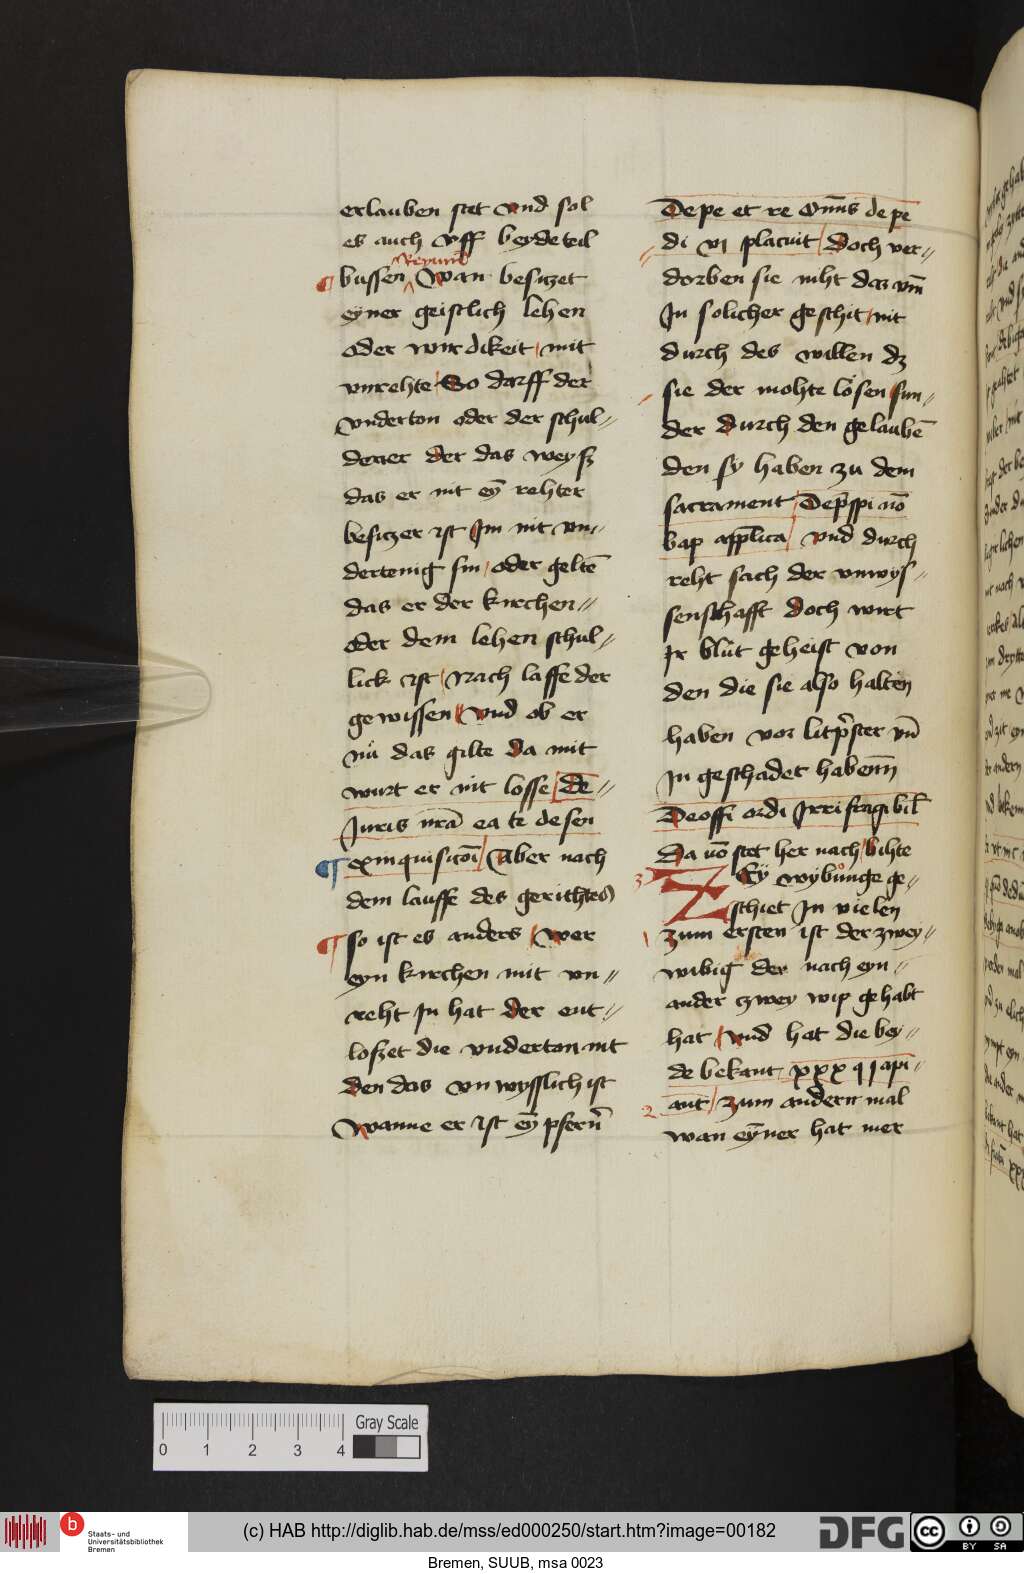 erlauben stet vnd sol
es auch vff beydeteil
bussen Wan besiczet
eyner geistlich lehen
oder wirdikeit mit
vnrehte So darff der
vnderton oder der schul
dener der das weysz
das er nit ey̅ rehter
besiczer ist Im nit vn
dertenig sin oder gelte̅
das er der kirchen
oder dem lehen schul
lick ist Nach lasse der
gewissen vnd ob er
nu das gilte da mit
wurt er nit losse de
Juris nra̅ ea te desen
exinquisicoi̅ Aber nach
dem lauffe des gerichtes
so ist es anders wer
eyn kirchen mit vn
reht In hat der ent
loszet die vnderton nit
den das vnwysslich ist
Wanne er ist ey̅ pfern̅
De pe et re Om̅s de pe
di vj placuit Doch ver
dorben sie niht daz vm̅
In solicher geschit nit
durch des willen dz
sie der mohte losen sun
der durch den gelaube̅
den sy haben zu dem
sacrament
bap app̅lica vnd durch
reht sach der vnwys
senschafft doch wirt
Ir blut geheist von
den die sie also halten
haben vor litp̅ster vn̅
In geschadet haben̅n
De offi ordi Irrifragibil̅
Da uo̅ stet her nach bihte
3 Zcy wybunge ge
schiet In vielen
zum ersten ist der zwey
wibig der nach eyn
ander czwey wip gehabt
hat vnd hat die bey
de bekant xxxiij api
2 ant zum andern mal
wan eyner hat mer
0 1 2 3 4
Gray Scale
b
Staats- und
Universitätsbibliothek
Bremen
(c) HAB http://diglib.hab.de/mss/ed000250/start.htm?image=00182
DFG
cc BY SA
Bremen, SUUB, msa 0023